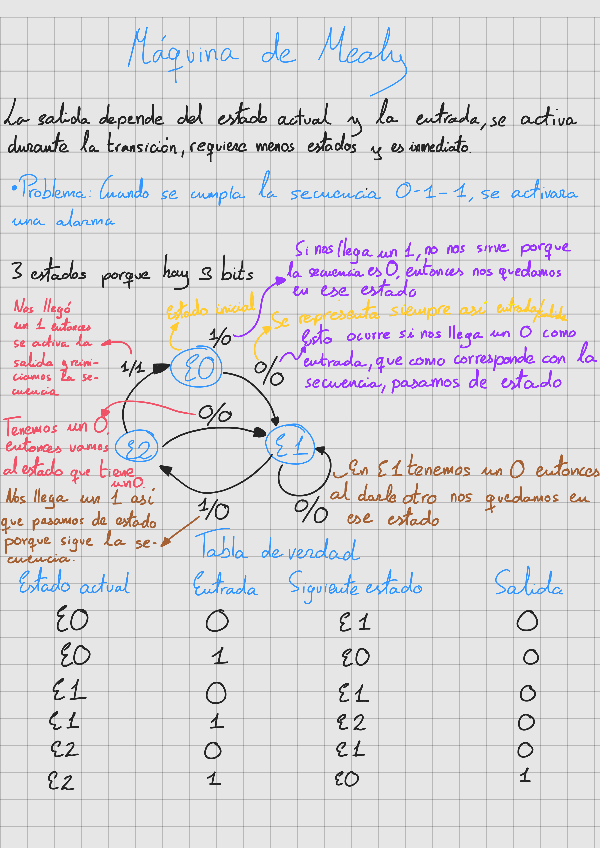 Máquina de Mealy
La salida depende del estado actual y la entrada, se activa
durante la transición, requiere menos estados y es inmediato.
• Problema: Cuando se cumpla la secuencia 0-1-1, se activara
una alarma
3 estados porque hay 3 bits
Si nos llega un 1, no nos sirve porque
la secuencia es 0, entonces nos quedamos
en ese estado
Estado inicial
Se representa siempre asi entrada/salida
Esto ocurre si nos llega un 0 como
entrada, que como corresponde con la
secuencia, pasamos de estado
Nos llegó
un 1 entonces
se activa la
salida y reini-
ciamos la se-
cuencia
1/0
1/1
E0
0/0
0/0
Tenemos un 0,
entonces vamos
al estado que tiene
un 0.
E2
E1
Nos llega un 1 asi
que pasamos de estado
porque sigue la se-
cuencia.
1/0
0/0
En E1 tenemos un 0 entonces
al darle otro nos quedamos en
ese estado
Tabla de verdad
Estado actual Entrada Siguiente estado Salida
E0 0 E1 0
E0 1 E0 0
E1 0 E1 0
E1 1 E2 0
E2 0 E1 0
E2 1 E0 1